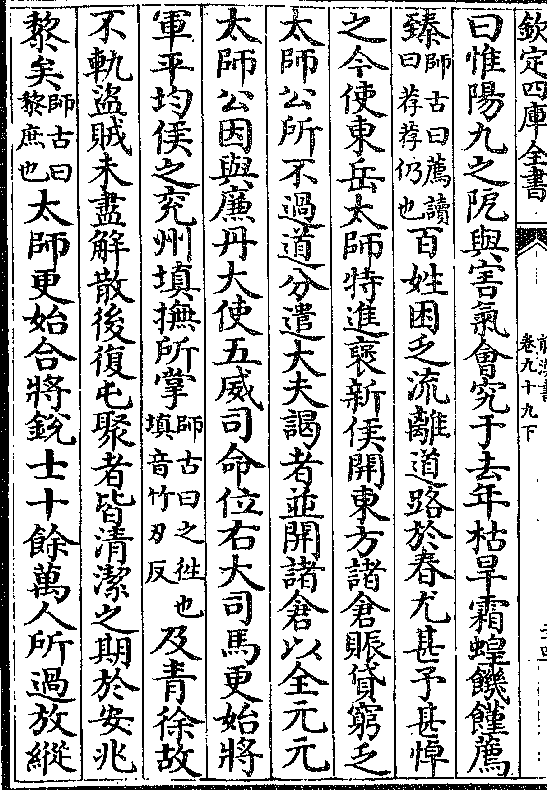 欽定四庫全書
卷九十九下
曰惟陽九之阨與害氣會究于去年枯旱霜蝗饑饉薦
臻師古曰薦讀曰荐荐仍也百姓困乏流離道路於春尤甚予甚悼
之今使東岳太師特進褒新侯開東方諸倉賑貸窮乏
太師公所不過道分遣大夫謁者並開諸倉以全元元
太師公因與廉丹大使五威司命位右大司馬更始將
軍平均侯之兖州填撫所掌師古曰之徃也填音竹刃反及青徐故
不軌盗賊未盡解散後復屯聚者皆清潔之期於安兆
黎矣師古曰黎庶也太師更始合將銳士十餘萬人所過放縱